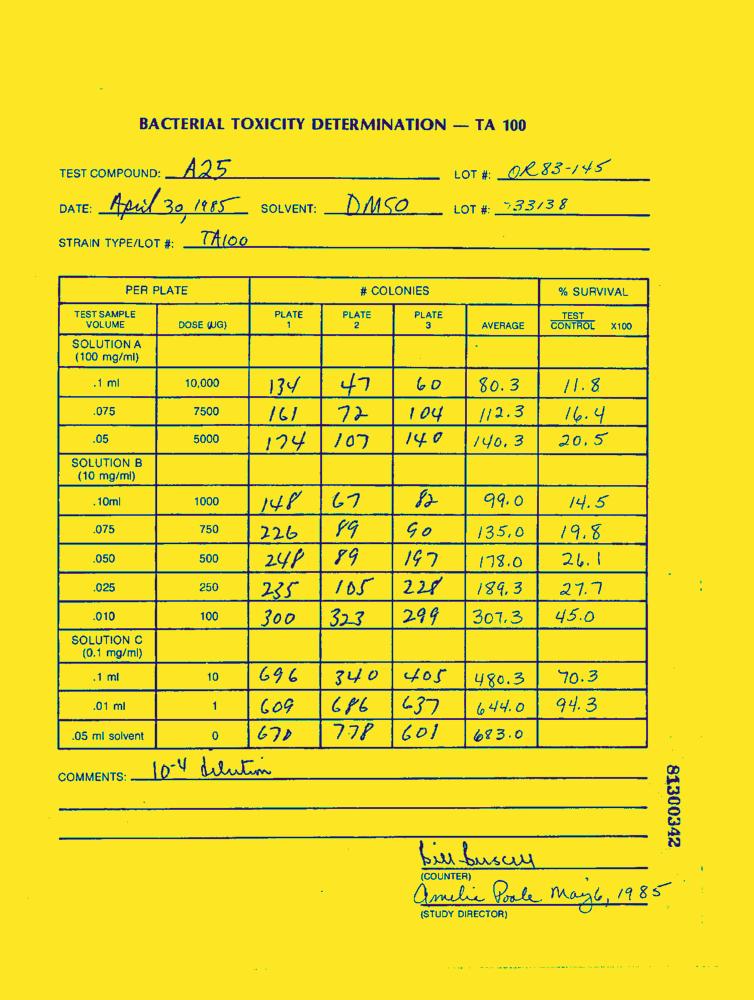 BACTERIAL TOXICITY DETERMINATION — TA 100
TEST COMPOUND: A25 LOT #: OR83-145
DATE: April 30, 1985 SOLVENT: DMSO LOT #: 33138
STRAIN TYPE/LOT #: TA100
PER PLATE # COLONIES % SURVIVAL
TEST SAMPLE VOLUME DOSE (UG) PLATE 1 PLATE 2 PLATE 3 AVERAGE TEST CONTROL X100
SOLUTION A
(100 mg/ml)
.1 ml 10,000 134 47 60 80.3 11.8
.075 7500 161 72 104 112.3 16.4
.05 5000 174 107 140 140.3 20.5
SOLUTION B
(10 mg/ml)
.10ml 1000 148 67 82 99.0 14.5
.075 750 226 89 90 135.0 19.8
.050 500 248 89 197 178.0 26.1
.025 250 235 105 228 189.3 27.7
.010 100 300 323 299 307.3 45.0
SOLUTION C
(0.1 mg/ml)
.1 ml 10 696 340 405 480.3 70.3
.01 ml 1 609 686 637 644.0 94.3
.05 ml solvent 0 670 778 601 683.0
COMMENTS: 10-4 dilution
81300342
(COUNTER)
Amelia Poole May 6, 1985
(STUDY DIRECTOR)